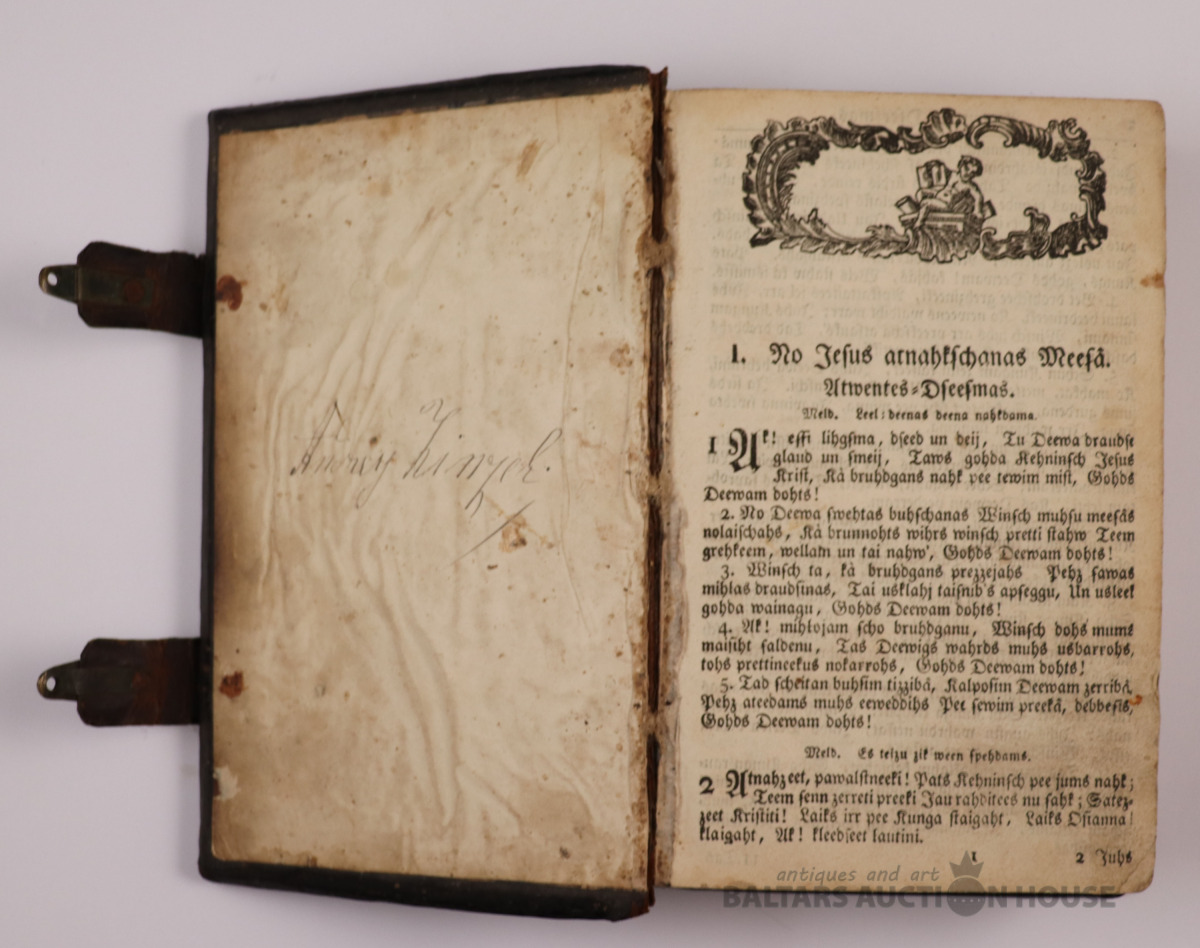 1. No Jesus atnahkschanas Meesâ.
Atwentes-Dseesmas.
Meld. Leel: deenas deena nahkdama.
1 Ak! essi lihgsma, dseed un deij, Tu Deewa draudse
glaud un smeij, Taws gohda Kehninsch Jesus
Krist, Kà bruhdgans nahk pee tewim mist, Gohds
Deewam dohts!
2. No Deewa swehtas buhschanas Winsch muhsu meesâs
nolaischahs, Kà brunnohts wihrs winsch pretti stahw Teem
grehkeem, wellam un tai nahw', Gohds Deewam dohts!
3. Winsch ta, kà bruhdgans prezzejahs Pehz sawas
mihlas draudsinas, Tai usklahj taisnib's apseggu, Un usleek
gohda wainagu, Gohds Deewam dohts!
4. Ak! mihlojam scho bruhdganu, Winsch dohs mums
maisiht saldenu, Tas Deewigs wahrds muhs usbarrohs,
tohs prettineekus nokarrohs, Gohds Deewam dohts!
5. Tad scheitan buhsim tizzibâ, Kalposim Deewam zerribâ,
Pehz ateedams muhs eeweddihs Pee sewim preekâ, debbesîs,
Gohds Deewam dohts!
Meld. Es teizu zik ween spehdams.
2 Atnahzeet, pawalstneeki! Pats Kehninsch pee jums nahk;
Teem senn zerreti preeki Jau rahditees nu sahk; Satez-
zeet Kristiti! Laiks irr pee Kunga staigaht, Laiks Osianna!
klaigaht, Ak! kleedseet lautini.
1 2 Juhs
antiques and art
BALTARS AUCTION HOUSE